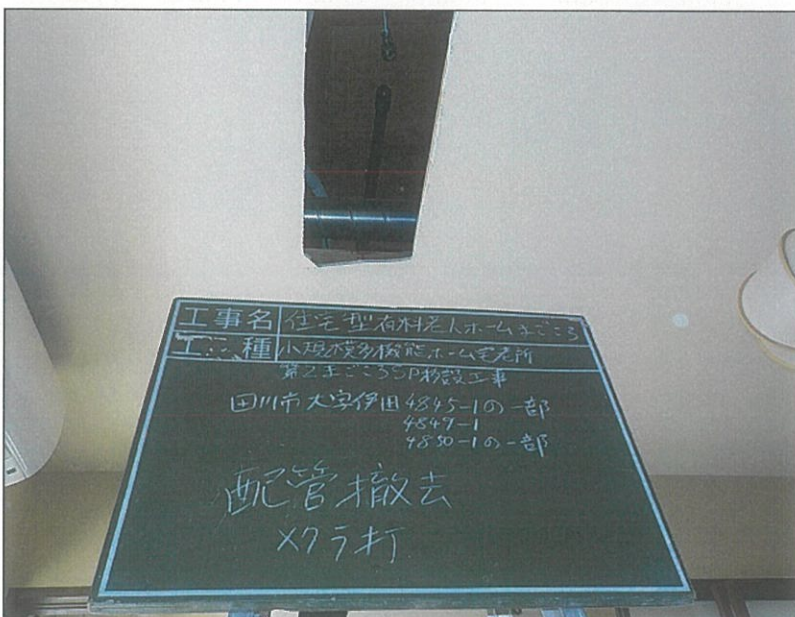 工事名 住宅型有料老人ホームまごころ
工種 小規模多機能ホーム宅老所
第2まごころSP移設工事
田川市大字伊田4845-1の一部
4849-1
4850-1の一部
配管撤去
メクラ打